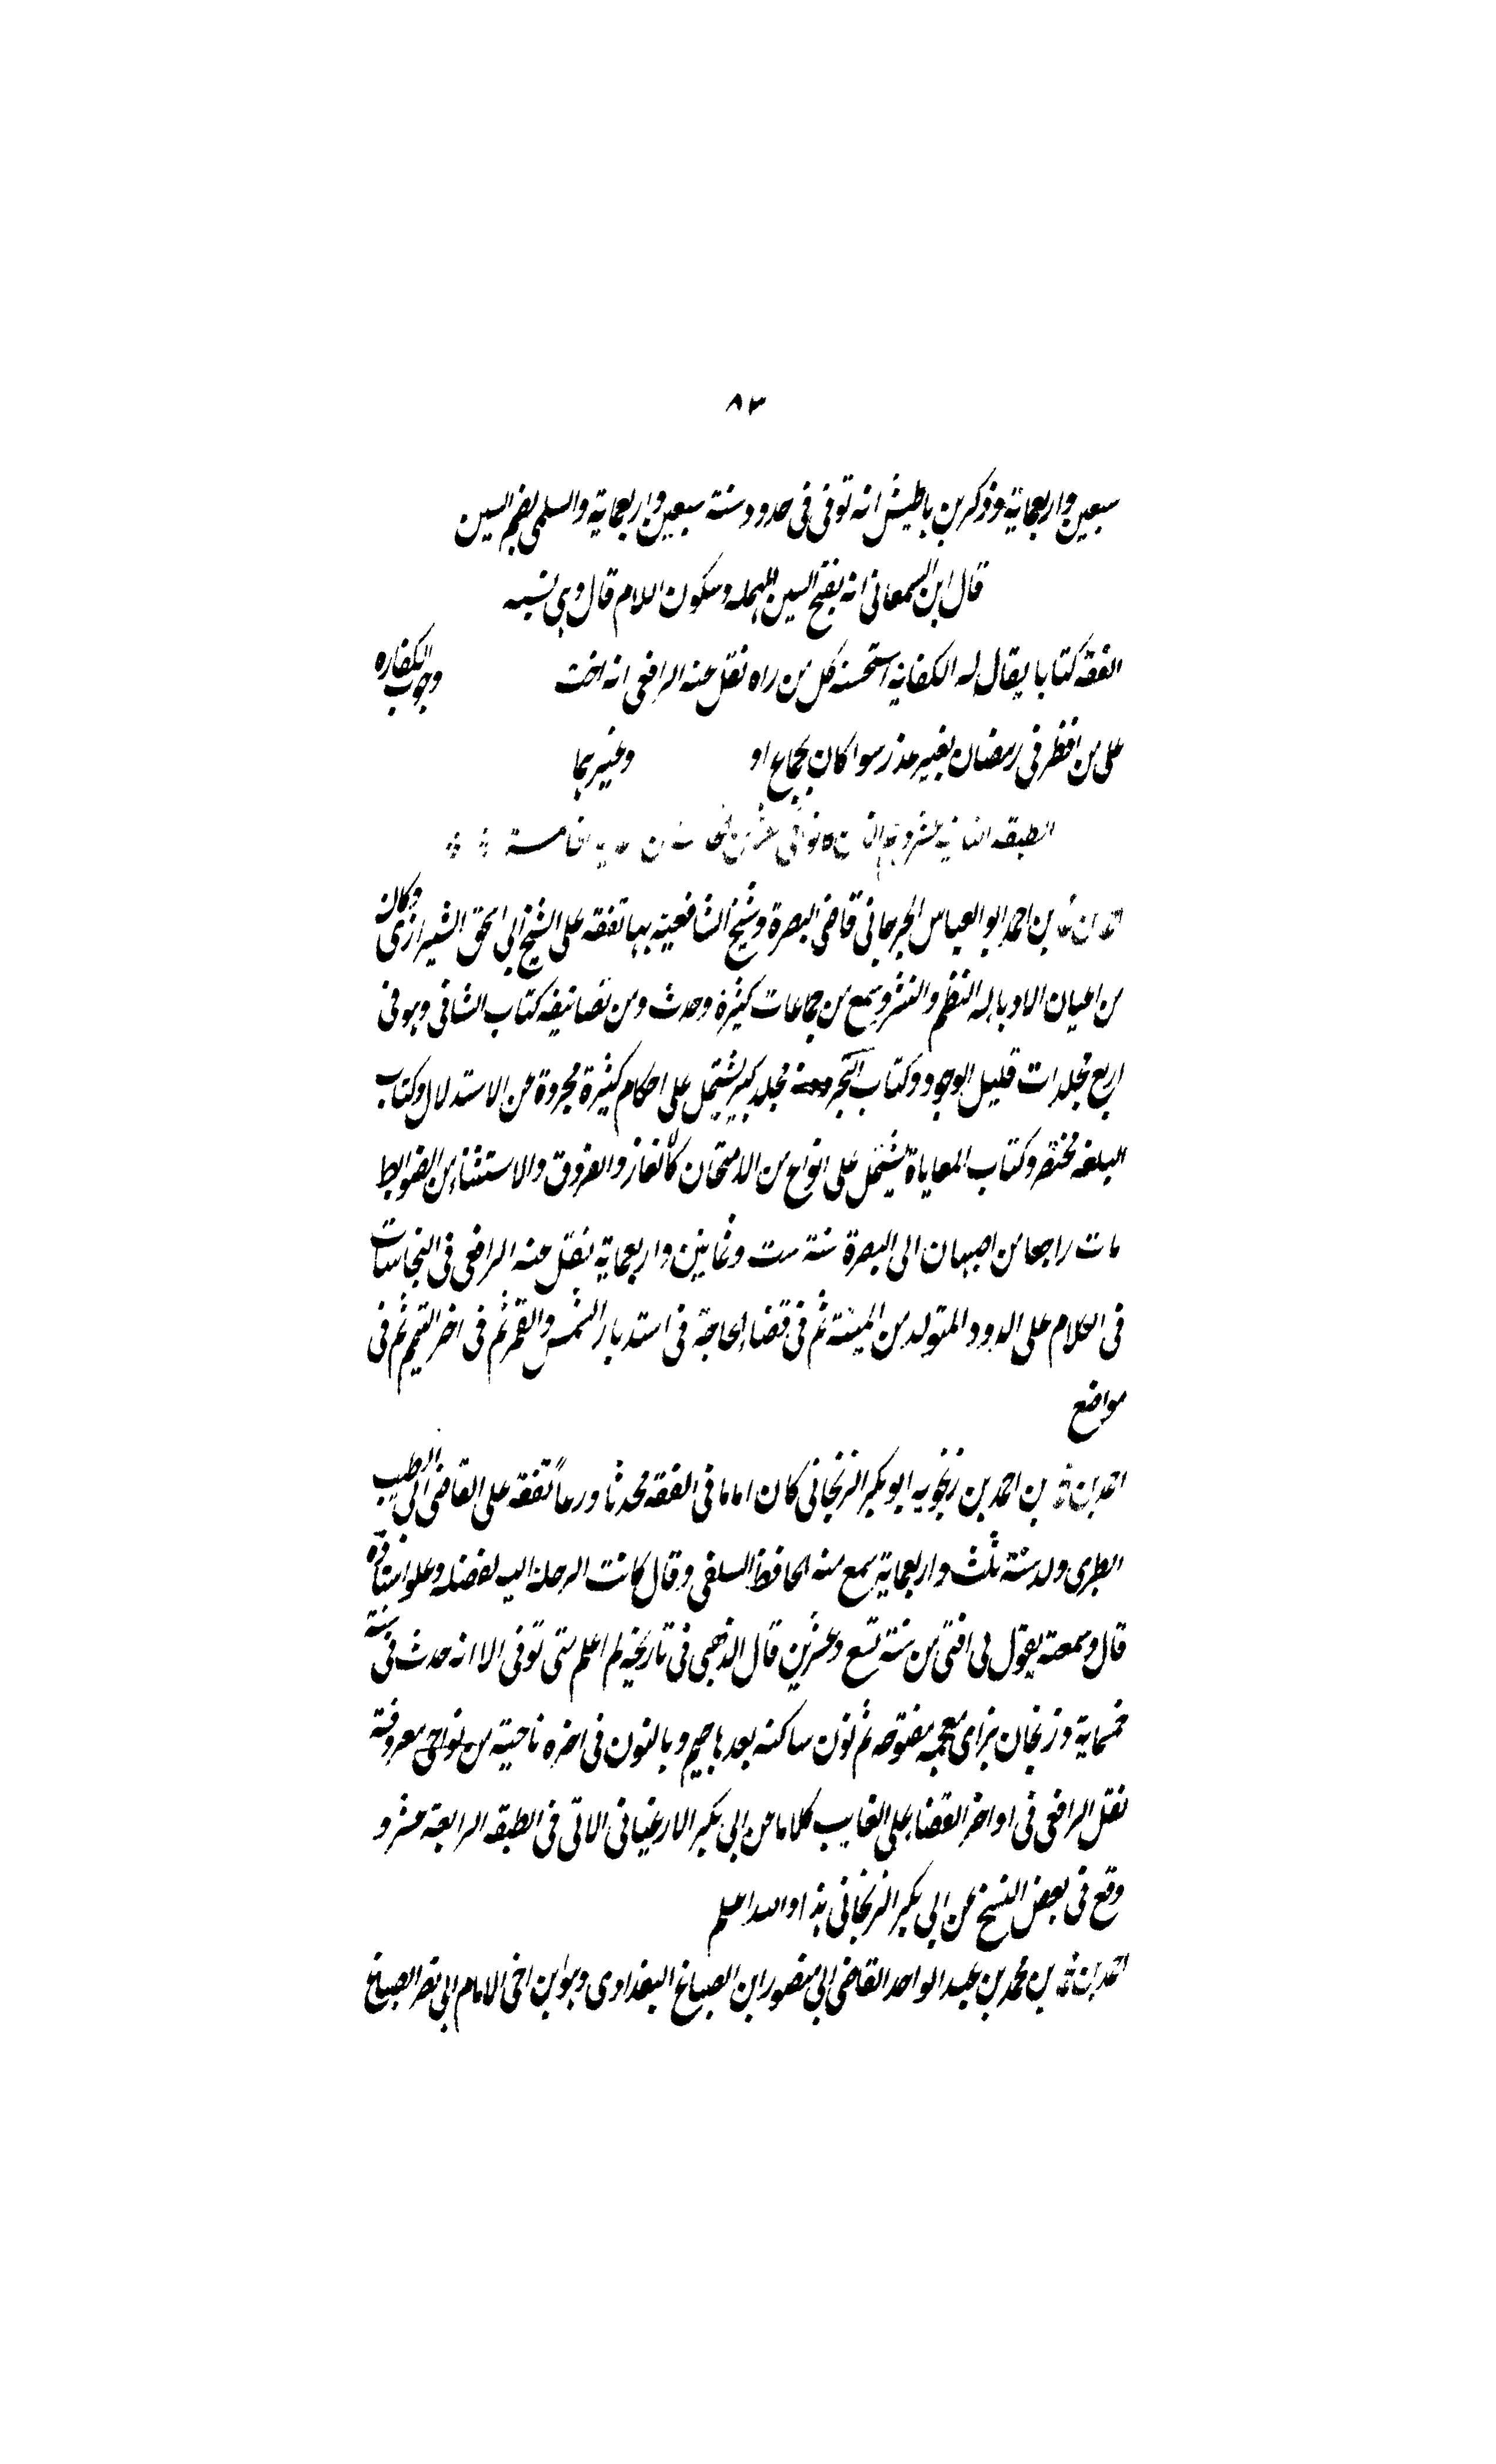 ٨٣
سبعين واربعماية وذكر بن باطيش انه توفى فى حدود سنة سبعين واربعماية والسلمى بضم السين
قال ابن السمعانى انه بفتح السين المهمله وسكون اللام قال وهى نسبه
الفقه كتابا يقال له الكفاية استحسنه كل من راه نقل عنه الرافعى انه اخت وجوب الكفاره
على من افطر فى رمضان بغير عذر سوا كان بجماع او وغيرهما
الطبقه الثانيه عشر
احمد بن محمد بن احمد ابو العباس الجرجانى قاضى البصرة وشيخ الشافعيه بها تفقه على الشيخ ابى اسحق الشيرازى وكان
من اعيان الادبا له النظم والنثر وسمع من جماعات كثيرة وحدث ومن تصانيفه كتاب الشافى وهو فى
اربع مجلدات قليل الوجود وكتاب التحرير مجلد كبير يشتمل على احكام كثيرة مجردة عن الاستدلال وكتاب
البلغه مختصر وكتاب المعاياة يشتمل على انواع من الامتحان كالالغاز والفروق والاستثناء من الضوابط
مات راجعا من اصبهان الى البصرة سنة ست وثمانين واربعماية نقل عنه الرافعى فى النجاسات
فى الكلام على الدود المتولد من الميتة ثم فى قضاء الحاجة فى استدبار الشمس والقمر ثم فى اخر التيمم ثم فى
مواضع
احمد بن محمد بن احمد بن زنجويه ابو بكر الزنجانى كان اماما فى الفقه محدثا ورعاً تفقه على القاضى ابى الطيب
الطبرى ولد سنة ثلث واربعماية سمع منه الحافظ السلفى وقال كانت الرحلة اليه لفضله وعلو اسناده
قال وسمعته يقول لى افتى من سنة تسع وعشرين قال الذهبى فى تاريخه لم اعلم متى توفى الا انه حدث فى سنة
خمسماية وزنجان بزاى معجمه مفتوحه ثم نون ساكنه بعدها جيم وبالنون فى اخره ناحية من نواحى معروفة
نقل الرافعى فى اواخر القضاء على الغايب كلاما عن ابى بكر الارغيانى الاتى فى الطبقه الرابعة عشر و
وقع فى بعض النسخ عن ابى بكر الزنجانى هذا والله اعلم
احمد بن محمد بن محمد بن عبد الواحد القاضى ابى منصور ابن الصباغ البغدادى وهو ابن اخى الامام ابى نصر الصباغ